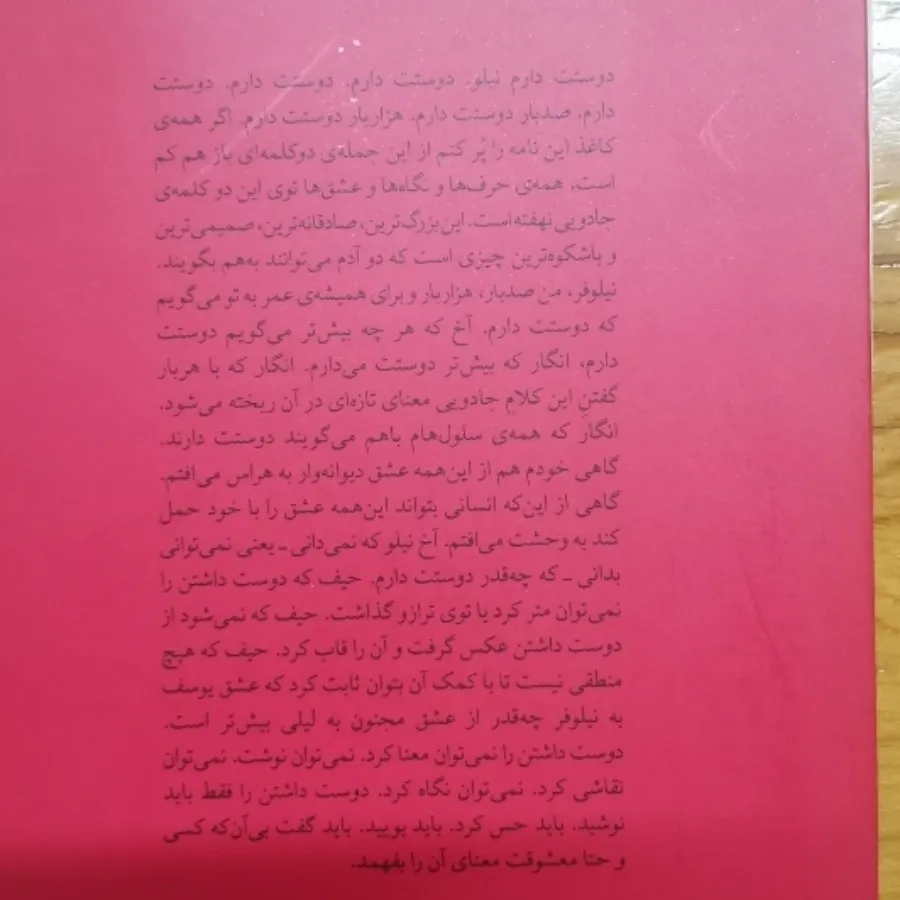 دوستت دارم نیلو. دوستت دارم. دوستت دارم. دوستت
دارم. صدبار دوستت دارم. هزاربار دوستت دارم. اگر همه‌ی
کاغذ این نامه را پُر کنم از این جمله‌ی دوکلمه‌ای باز هم کم
است. همه‌ی حرف‌ها و نگاه‌ها و عشق‌ها توی این دو کلمه‌ی
جادویی نهفته است. این‌بزرگ‌ترین، صادقانه‌ترین، صمیمی‌ترین
و باشکوه‌ترین چیزی است که دو آدم می‌توانند به‌هم بگویند.
نیلوفر، من صدبار، هزاربار و برای همیشه‌ی عمر به تو می‌گویم
که دوستت دارم. آخ که هر چه بیش‌تر می‌گویم دوستت
دارم، انگار که بیش‌تر دوستت می‌دارم. انگار که با هربار
گفتنِ این کلام جادویی معنای تازه‌ای در آن ریخته می‌شود.
انگار که همه‌ی سلول‌هام باهم می‌گویند دوستت دارند.
گاهی خودم هم از این‌همه عشق دیوانه‌وار به هراس می‌افتم.
گاهی از این‌که انسانی بتواند این‌همه عشق را با خود حمل
کند به وحشت می‌افتم. آخ نیلو که نمی‌دانی ـ یعنی نمی‌توانی
بدانی ـ که چه‌قدر دوستت دارم. حیف که دوست داشتن را
نمی‌توان متر کرد یا توی ترازو گذاشت. حیف که نمی‌شود از
دوست داشتن عکس گرفت و آن را قاب کرد. حیف که هیچ
منطقی نیست تا با کمک آن بتوان ثابت کرد که عشق یوسف
به نیلوفر چه‌قدر از عشق مجنون به لیلی بیش‌تر است.
دوست داشتن را نمی‌توان معنا کرد. نمی‌توان نوشت. نمی‌توان
نقاشی کرد. نمی‌توان نگاه کرد. دوست داشتن را فقط باید
نوشید. باید حس کرد. باید بویید. باید گفت بی‌آن‌که کسی
و حتا معشوقت معنای آن را بفهمد.